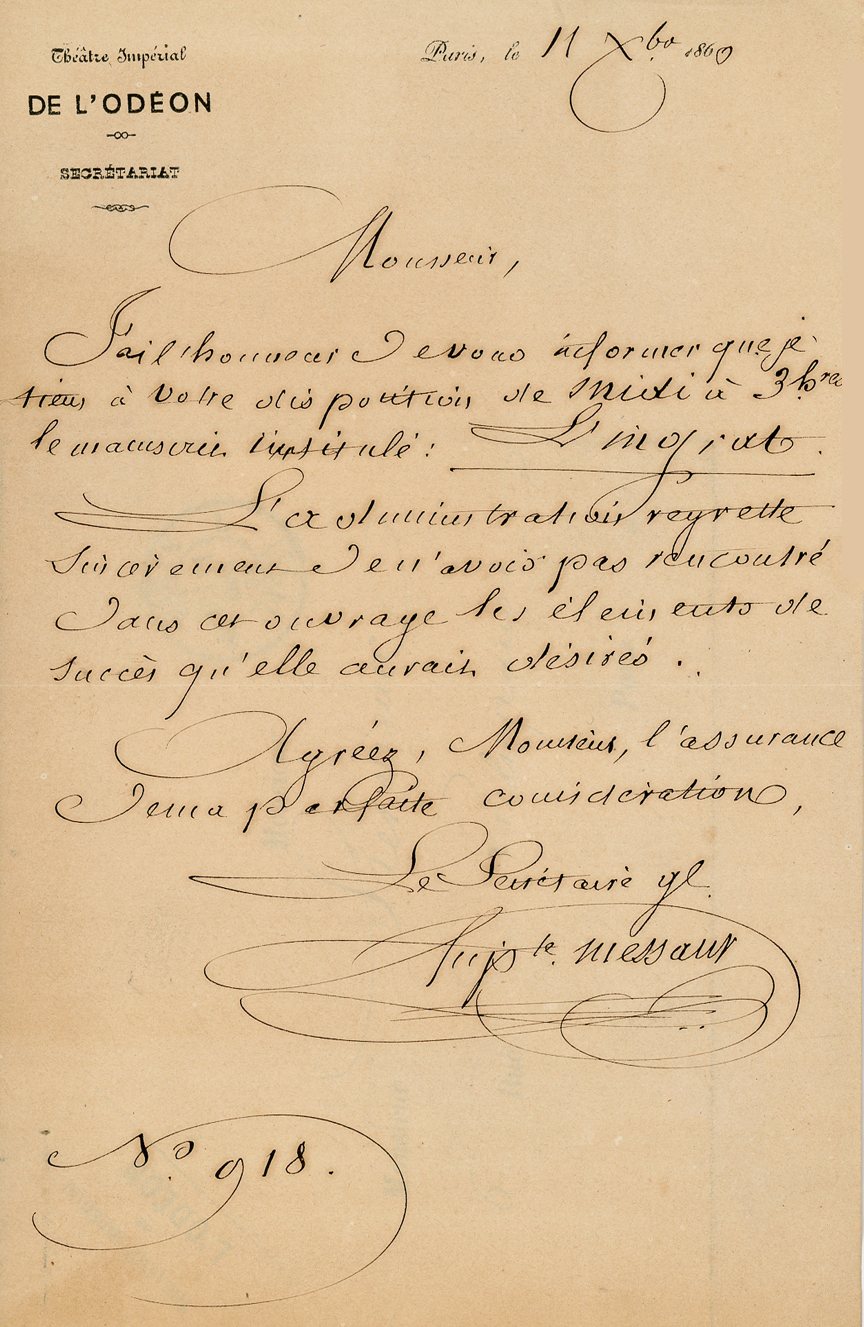 Théâtre Impérial
DE L'ODÉON
SECRÉTARIAT
Paris, le 11 Xbre 1869
Monsieur,
J'ai l'honneur de vous informer que je
tiens à votre disposition de midi à 3 hres
le manuscrit intitulé : L'ingrat.
L'administration regrette
sincèrement de n'avoir pas rencontré
dans cet ouvrage les éléments de
succès qu'elle aurait désirés.
Agréez, Monsieur, l'assurance
de ma parfaite considération,
Le Secrétaire gl.
messant
No 918.